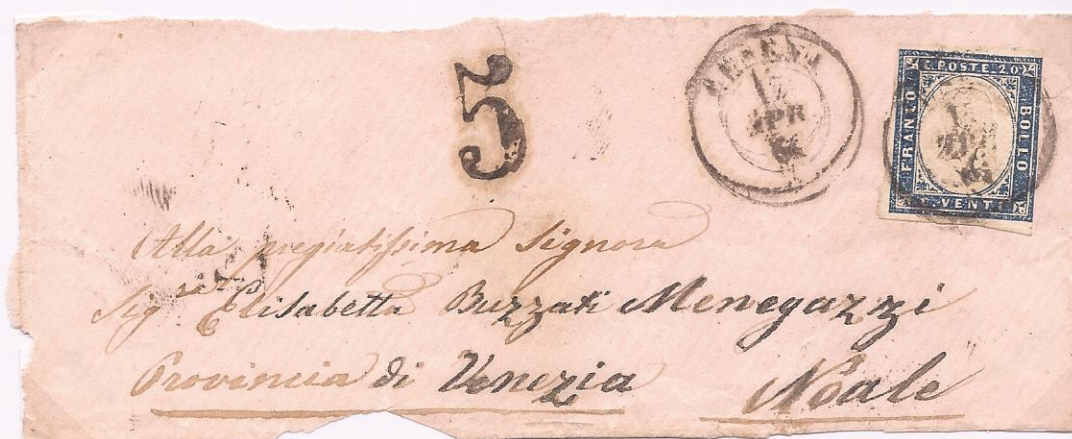 5
12
APR
C. POSTE 20
FRANCO
BOLLO
C. VENTI
Alla pregiatissima Signora
Sig.ra Elisabetta Buzzati Menegazzi
Provincia di Venezia Noale